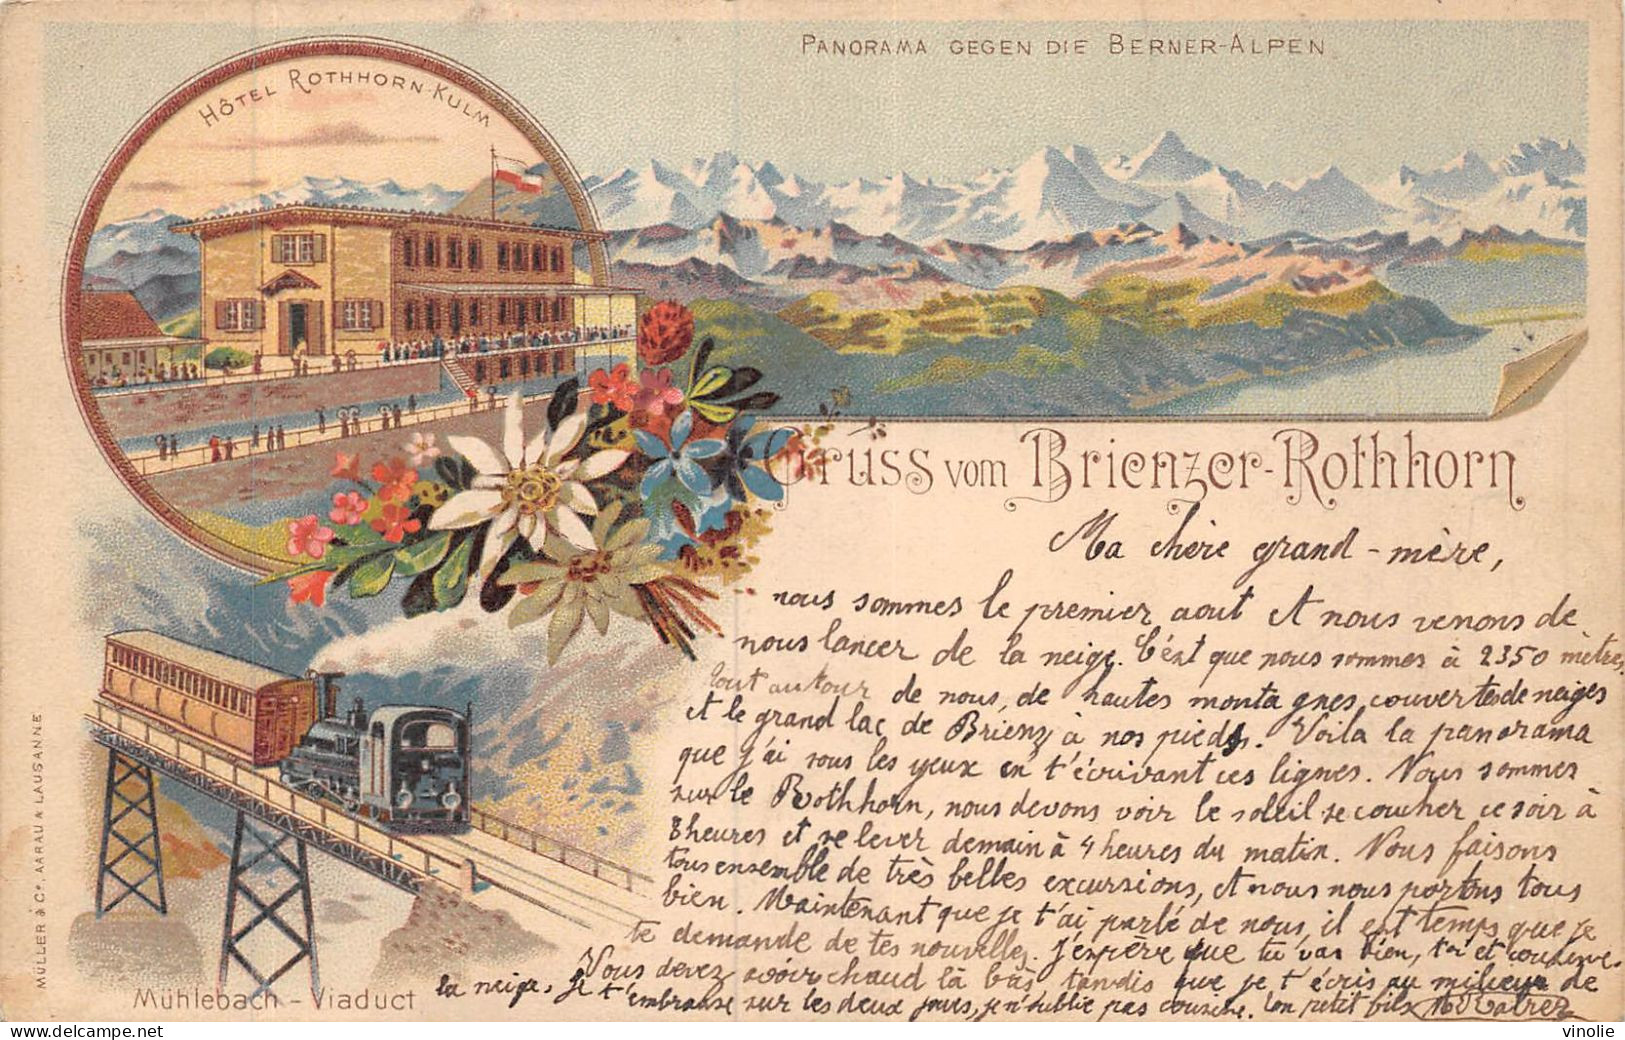 PANORAMA GEGEN DIE BERNER-ALPEN
HÔTEL ROTHHORN-KULM
Gruss vom Brienzer-Rothhorn
Ma chère grand-mère,
nous sommes le premier aout et nous venons de
nous lancer de la neige. C'est que nous sommes à 2350 mètres,
tout autour de nous, de hautes montagnes couvertes de neiges
et le grand lac de Brienz à nos pieds. Voila la panorama
que j'ai sous les yeux en t'écrivant ces lignes. Nous sommes
sur le Rothhorn, nous devons voir le soleil se coucher ce soir à
8 heures et se lever demain à 4 heures du matin. Nous faisons
tous ensemble de très belles excursions, et nous nous portons tous
bien. Maintenant que je t'ai parlé de nous, il est temps que je
te demande de tes nouvelles. J'espère que tu vas bien, toi et cousine.
Vous devez avoir chaud là bas, tandis que je t'écris au milieu de
la neige. Je t'embrasse sur les deux joues, je n'oublie pas cousine. Ton petit fils
Mühlebach - Viaduct
MÜLLER & Cº. AARAU & LAUSANNE
vinolie